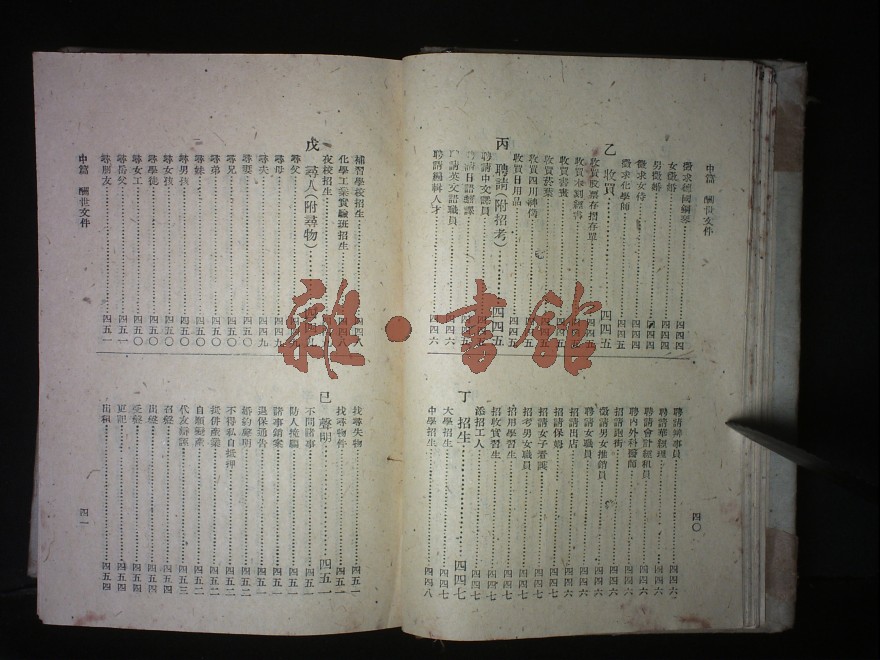 中篇 酬世文件
徵求德國鋼琴 四四四
女徵婚 四四四
男徵婚 四四四
徵求女侍 四四四
徵求化學師 四四五
乙 收買 四四五
收買股票存摺存單 四四五
收買書畫 四四五
收買菸葉 四四五
收買四川神傷
收買日用品 四四五
丙 聘請(附招考) 四四五
聘請中文譯員
聘請日語翻譯
聘請英文語職員 四四六
聘請編輯人才 四四六
聘請辦事員 四四六
聘請華經理 四四六
聘請會計經租員 四四六
聘內外科醫師 四四六
招請跑街 四四六
徵請男女推銷員 四四六
聘請女職員 四四六
招請出店 四四六
招請保姆 四四六
招請女子看護 四四七
招考男女職員 四四七
招用學習生 四四七
招收實習生 四四七
添招工人 四四七
丁 招生 四四七
大學招生 四四七
中學招生 四四八
四〇
補習學校招生 四四八
化學工業實驗班招生 四四八
夜校招生
戊 尋人(附尋物) 四四九
尋父 四四九
尋母 四四九
尋夫 四四九
尋妻 四五〇
尋兄 四五〇
尋弟 四五〇
尋妹 四五〇
尋男孩 四五〇
尋女孩 四五〇
尋學徒 四五〇
尋女工 四五一
尋岳父 四五一
尋朋友 四五一
中篇 酬世文件
找尋失物 四五一
找尋物件 四五二
已 聲明 四五一
不問諸事 四五一
防人掩騙 四五一
諸事銷案 四五一
退保通告 四五一
婚約聲明 四五二
不得私自抵押 四五二
拔併產業 四五二
自願變產 四五二
代友辯誣 四五三
召盤 四五四
出盤 四五四
受盤 四五四
更記 四五四
出租 四五四
四一
雜·書館